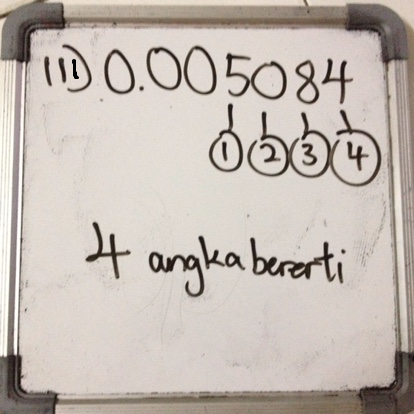 iii) 0.005084
1 2 3 4
4 angka bererti